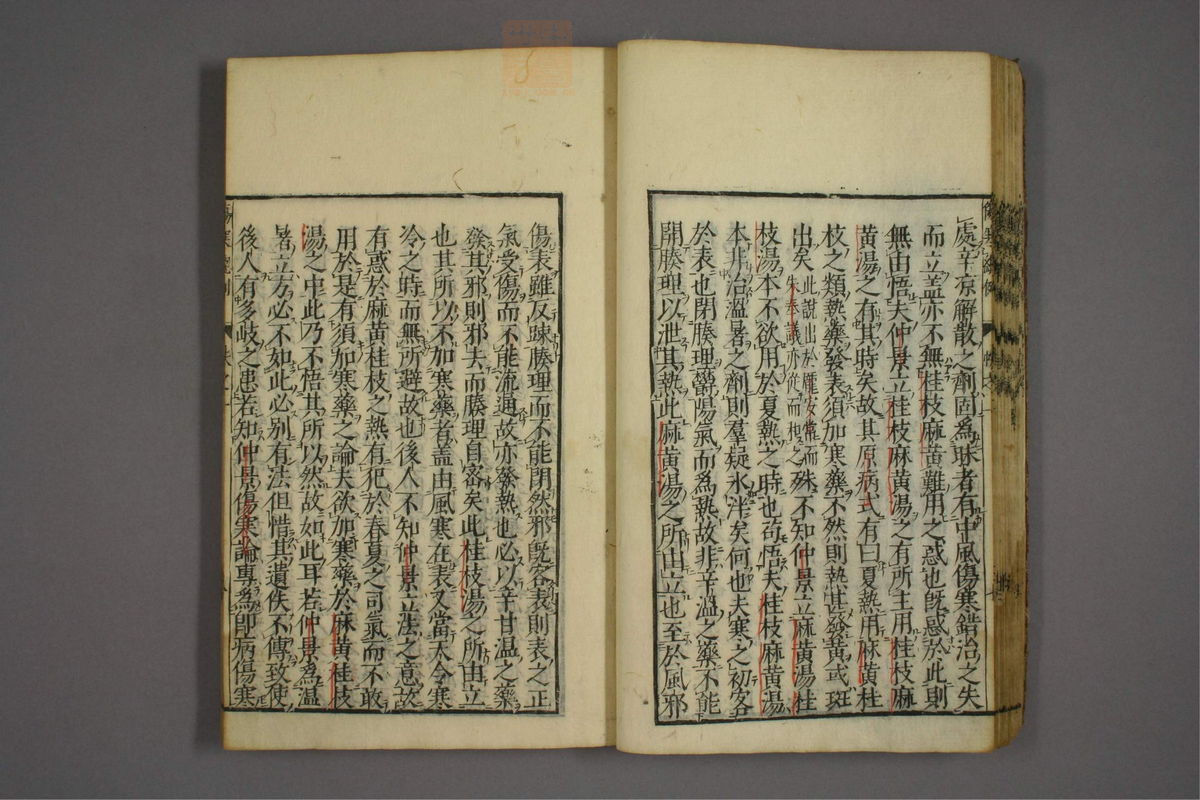 處辛凉解散之劑固爲昧者有中風傷寒錯治之失
而立盖亦不無桂枝麻黄難用之惑也旣惑於此則
無由悟夫仲景立桂枝麻黄湯之有所主用桂枝麻
黄湯之有其時矣故其原病式有曰夏熱用麻黄桂
枝之類熱藥發表須加寒藥不然則熱甚發黄或斑
出矣此說出於龐安常而
朱奉議亦從而和之殊不知仲景立麻黄湯桂
枝湯本不欲用於夏熱之時也苟悟夫桂枝麻黄湯
本非治溫暑之劑則羣疑氷泮矣何也夫寒之初客
於表也閉腠理鬱陽氣而爲熱故非辛溫之藥不能
開腠理以泄其熱此麻黄湯之所由立也至於風邪
傷表雖反踈腠理而不能閉然邪旣客表則表之正
氣受傷而不能流通故亦發熱也必以辛甘溫之藥
發其邪則邪去而腠理自密矣此桂枝湯之所由立
也其所以不加寒藥者盖由風寒在表又當天令寒
冷之時而無所避故也後人不知仲景立法之意故
有惑於麻黄桂枝之熱有犯於春夏之司氣而不敢
用於是有須加寒藥之論夫欲加寒藥於麻黄桂枝
湯之中此乃不悟其所以然故如此耳若仲景爲溫
暑立方必不如此必别有法但惜其遺佚不傳致使
後人有多歧之患若知仲景傷寒論專爲卽病傷寒